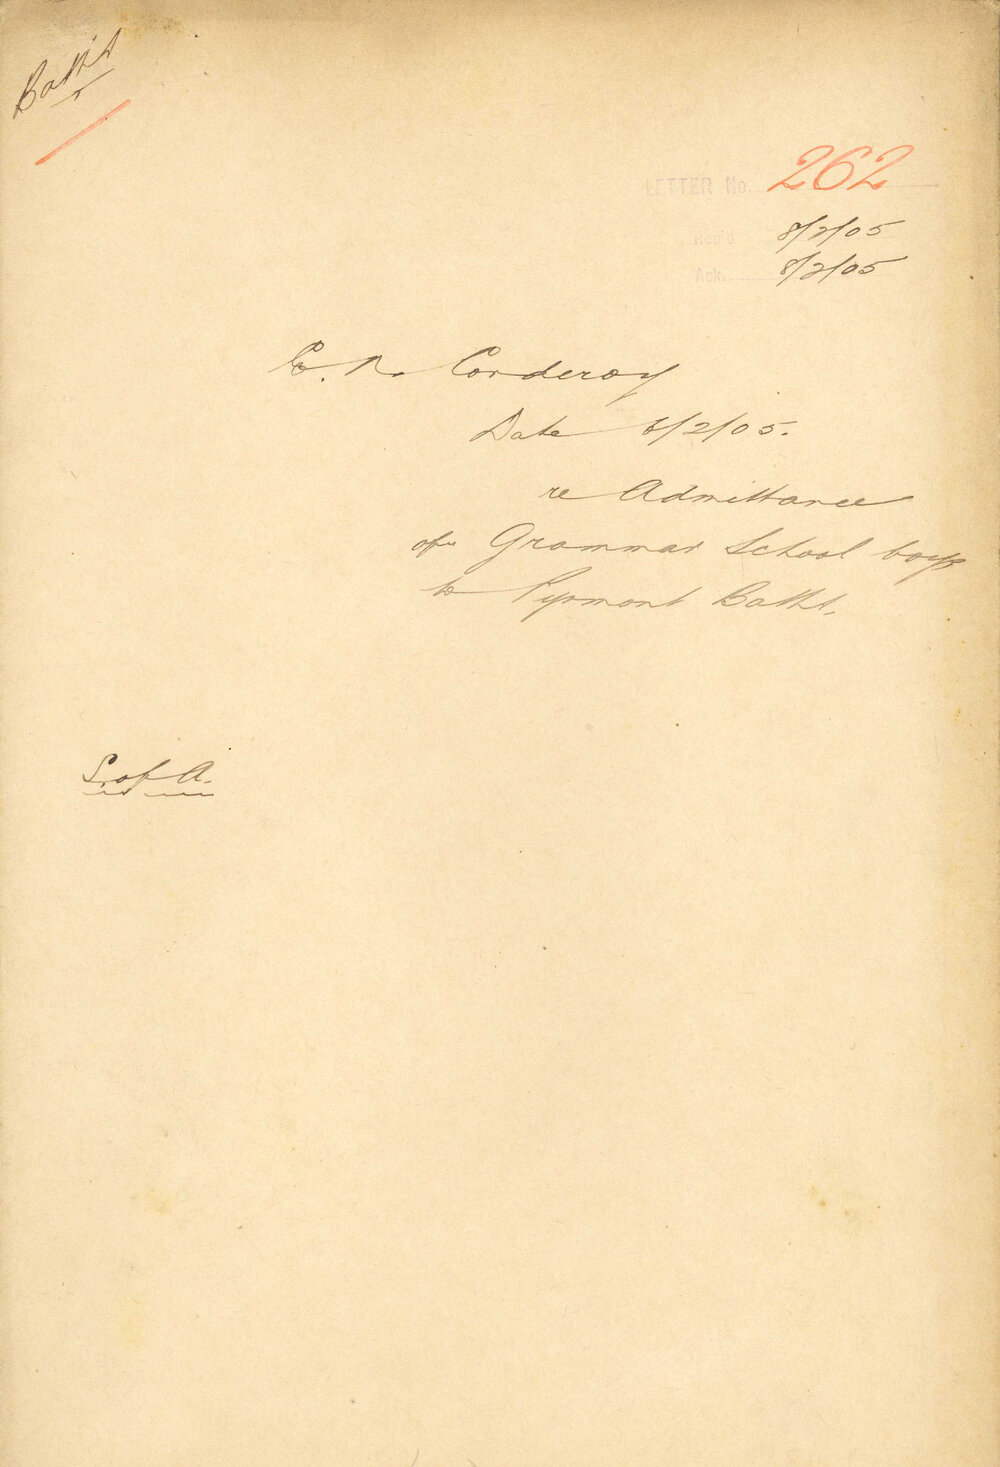 Baths
LETTER No. 262
Rec'd 8/2/05
Ack. 8/2/05
C. R. Corderoy
Date 6/2/05.
re Admittance
of Grammar School boys
to Pyrmont Baths.
S. of A.